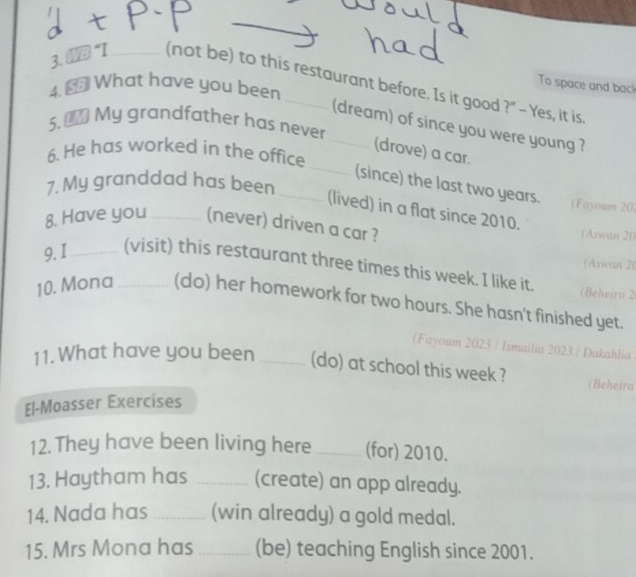 'd + P.P → would
had
To space and back
3. WB "I ........ (not be) to this restaurant before. Is it good ?" – Yes, it is.
4. SB What have you been ........ (dream) of since you were young ?
5. LM My grandfather has never ........ (drove) a car.
6. He has worked in the office ........ (since) the last two years. (Fayoum 20
7. My granddad has been ........ (lived) in a flat since 2010. (Aswan 20
8. Have you ........ (never) driven a car ? (Aswan 20
9. I ........ (visit) this restaurant three times this week. I like it. (Beheira 2
10. Mona ........ (do) her homework for two hours. She hasn't finished yet.
(Fayoum 2023 / Ismailia 2023 / Dakahlia
11. What have you been ........ (do) at school this week ? (Beheira
El-Moasser Exercises
12. They have been living here ........ (for) 2010.
13. Haytham has ........ (create) an app already.
14. Nada has ........ (win already) a gold medal.
15. Mrs Mona has ........ (be) teaching English since 2001.